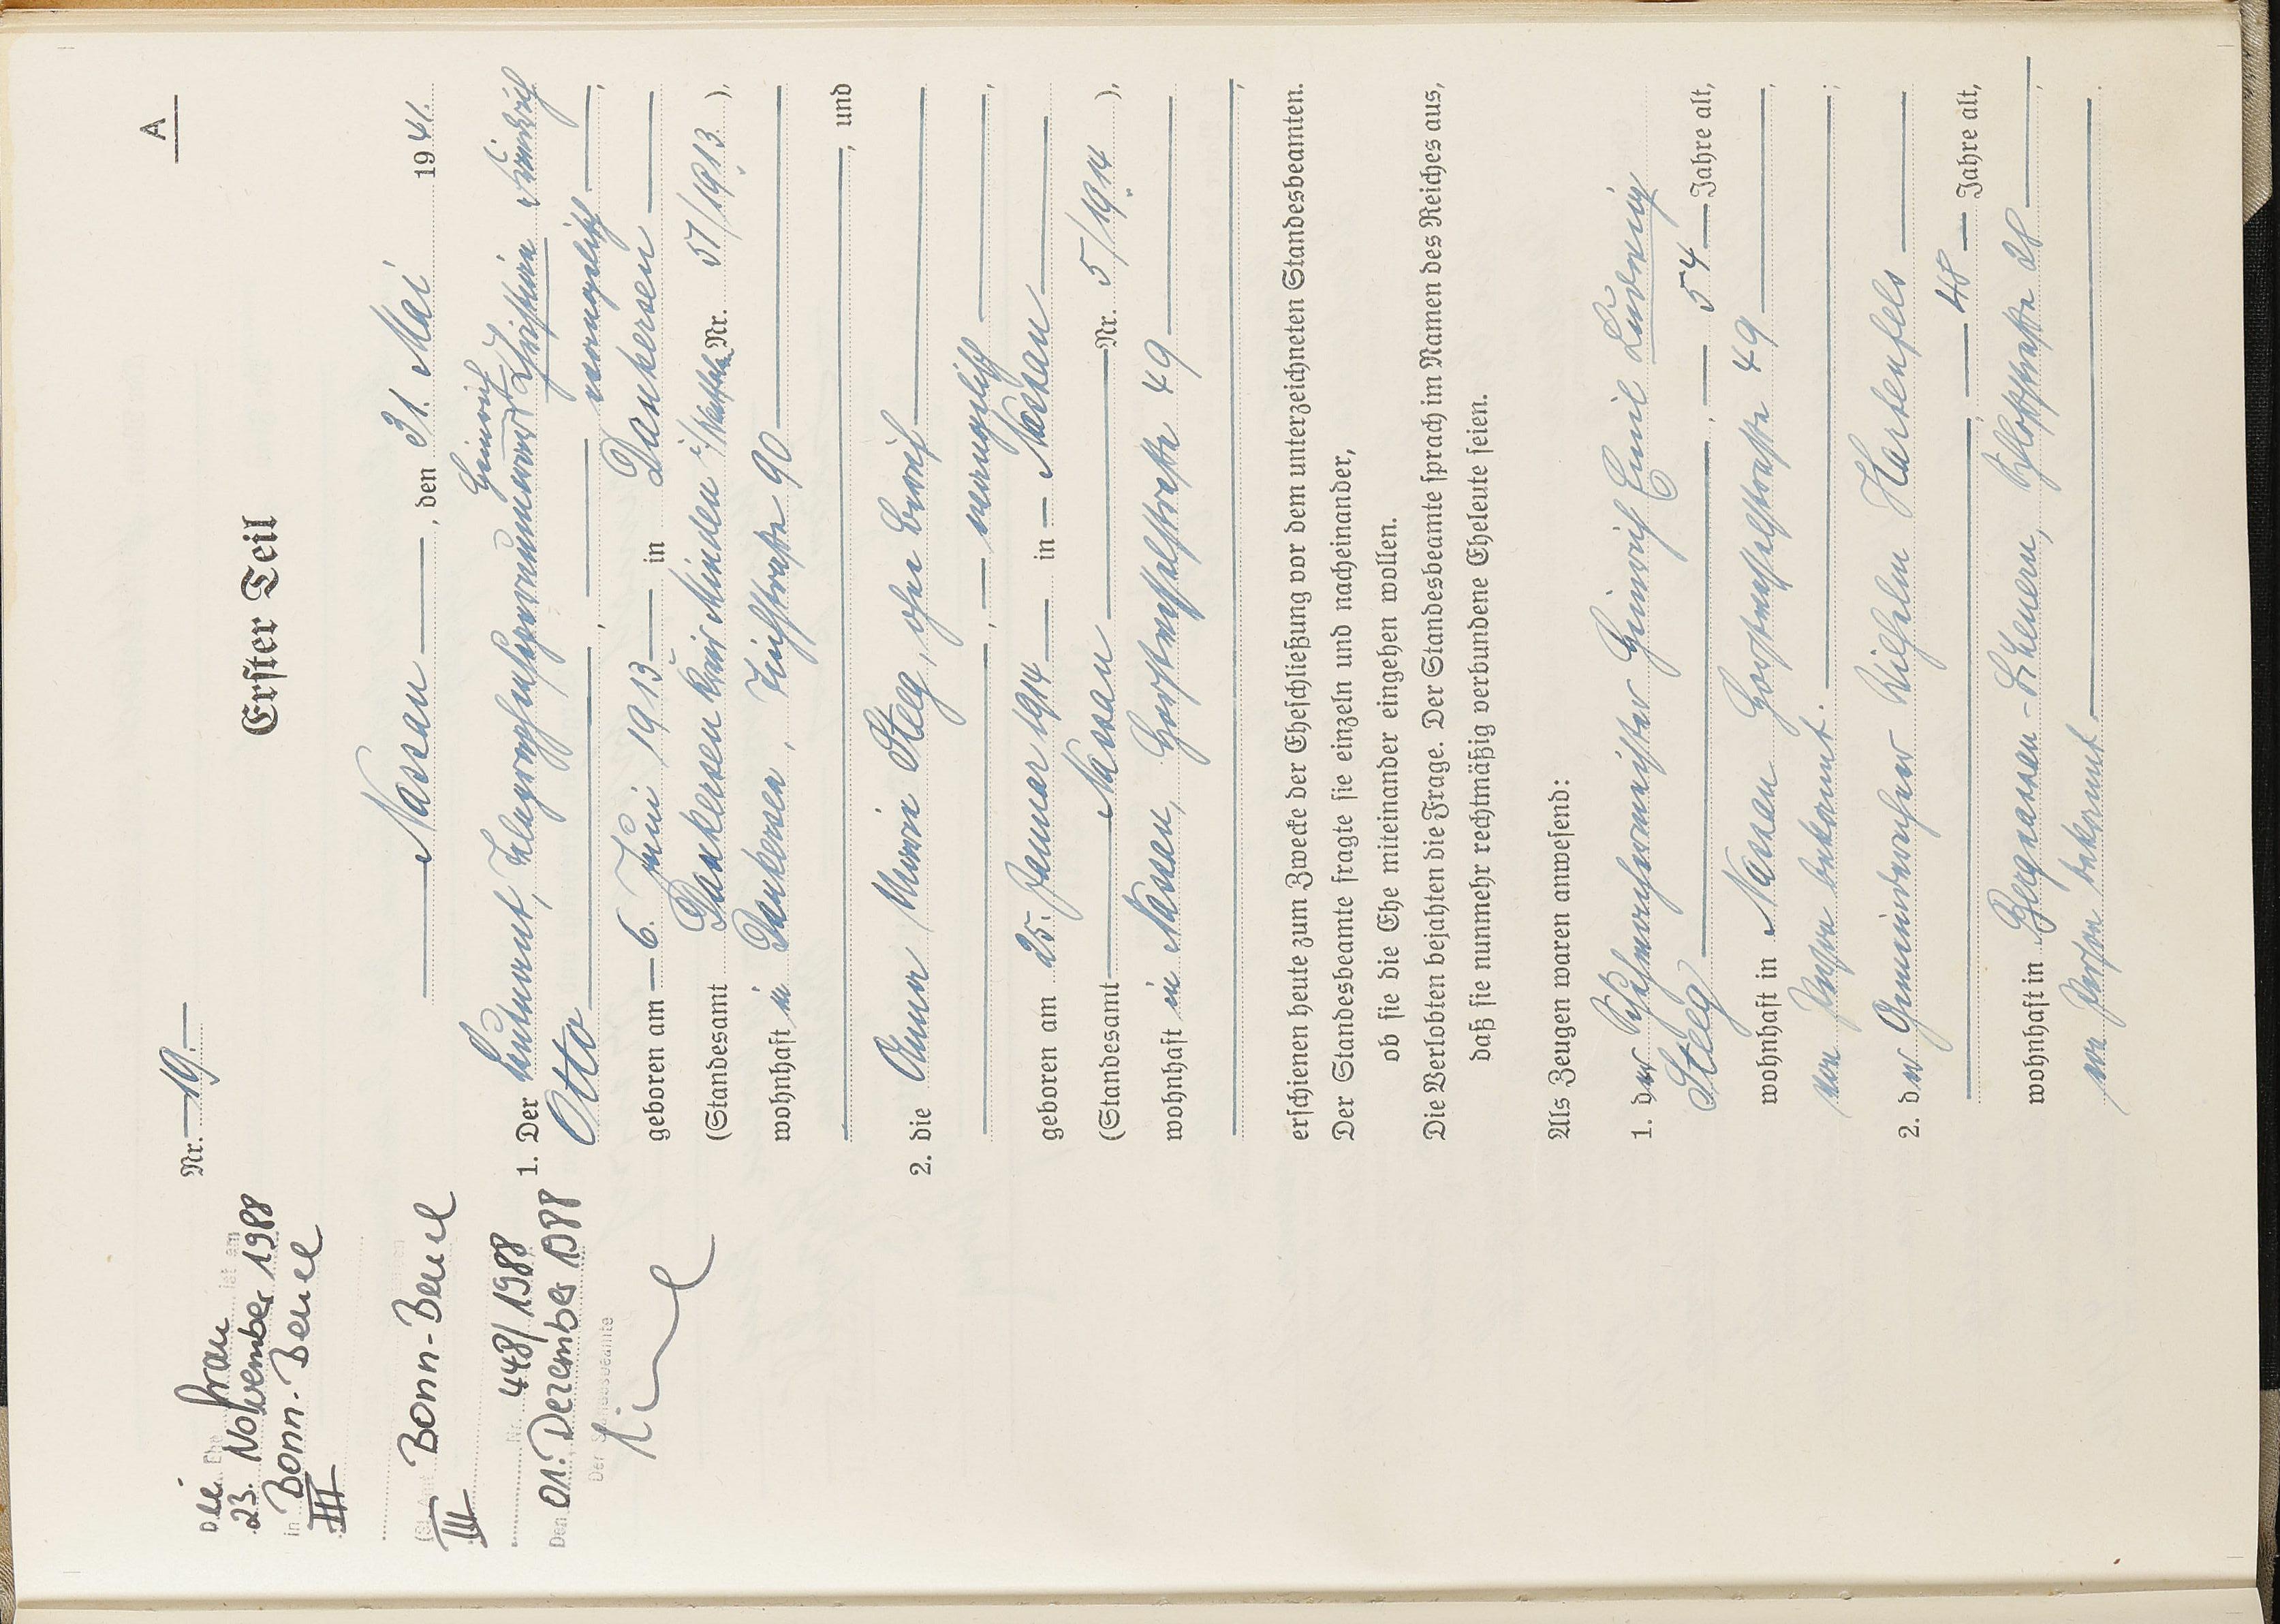 A
Nr. 19.
Erster Teil
Nassau, den 31. Mai 1941.
1. Der Leutnant, Heinrich Christian Friedrich
Otto, evangelisch,
geboren am 6. Juni 1913 in Dankersen
(Standesamt Dankersen Kreis Minden i/Westfalen Nr. 57/1913.),
wohnhaft in Dankersen, 90
, und
2. die Anna Maria Steeg, ohne Beruf
, evangelisch,
geboren am 25. Januar 1914 in Nassau
(Standesamt Nassau Nr. 5/1914),
wohnhaft in Nassau, 49
,
erschienen heute zum Zwecke der Eheschließung vor dem unterzeichneten Standesbeamten.
Der Standesbeamte fragte sie einzeln und nacheinander,
ob sie die Ehe miteinander eingehen wollen.
Die Verlobten bejahten die Frage. Der Standesbeamte sprach im Namen des Reiches aus,
daß sie nunmehr rechtmäßig verbundene Eheleute seien.
Als Zeugen waren anwesend:
1. der Schuhmachermeister Heinrich Emil Ludwig
Steeg, 54 Jahre alt,
wohnhaft in Nassau 49,
von Person bekannt.;
2. der Wilhelm Hartenfels
, 48 Jahre alt,
wohnhaft in Bergnassau-Scheuern, 28,
von Person bekannt.
Die Frau ist am
23. November 1988
in Bonn-Beuel
III
Bonn-Beuel
III
Nr. 448/1988
Den 01. Dezember 1988
Der Standesbeamte